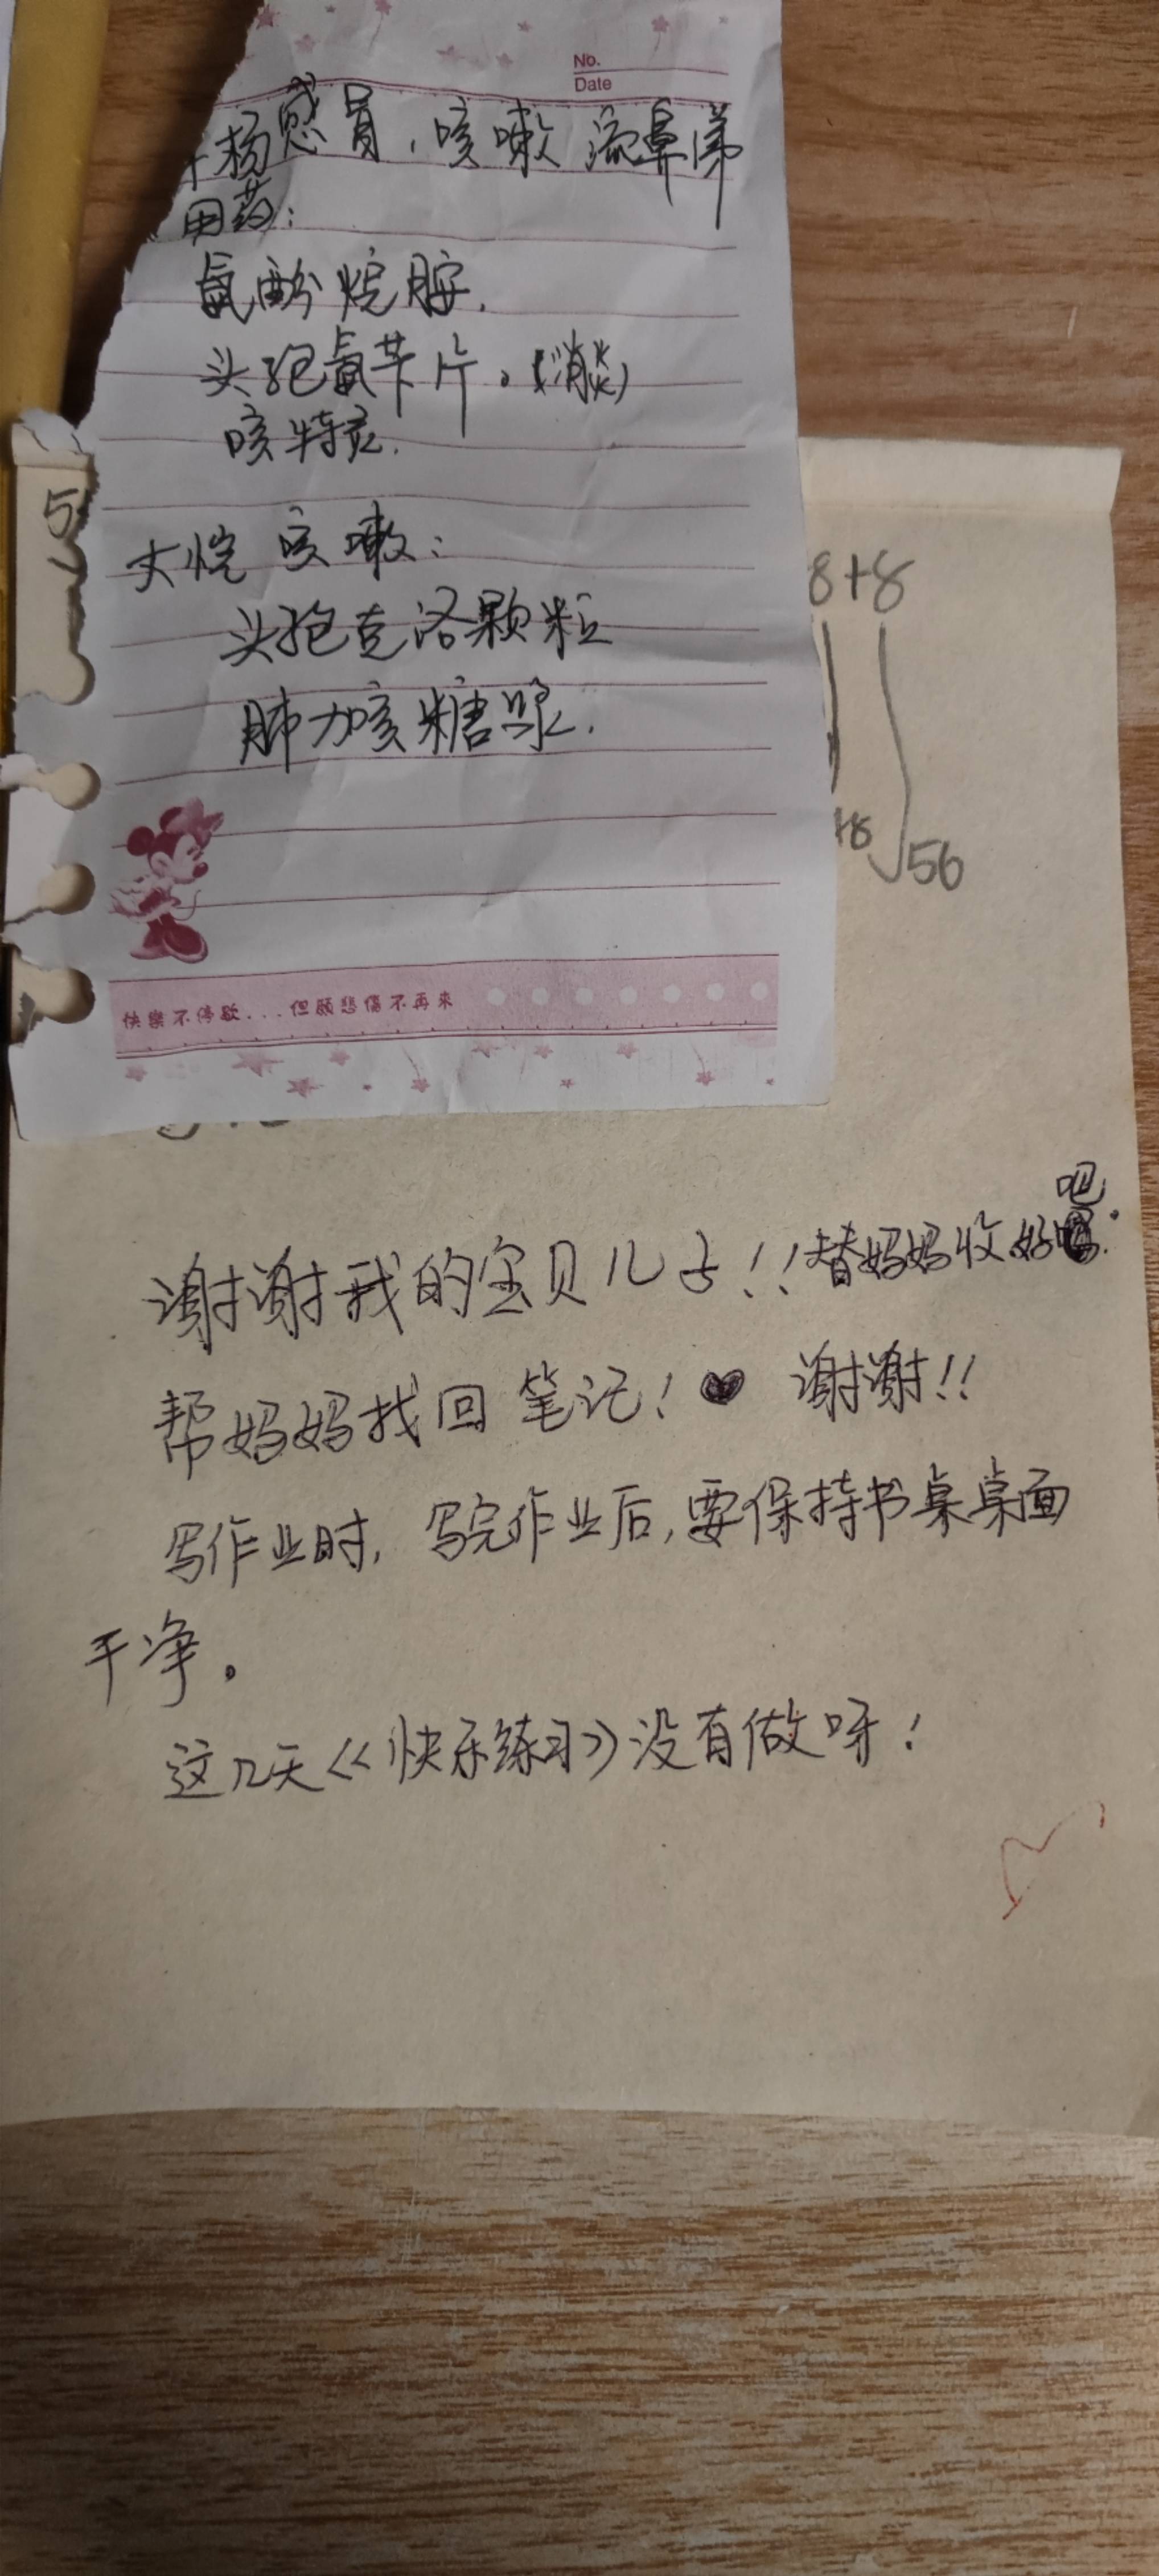 No.
Date
杨感冒,咳嗽 流鼻涕
用药:
氨酚烷胺.
头孢氨苄片。(消炎)
咳特灵.
咳嗽:
头孢克洛颗粒
肺力咳糖浆.
快樂不停歇...但願悲傷不再來
5
8+8
+8
56
谢谢我的宝贝儿子!!替妈妈收好吧.
帮妈妈找回笔记!♥ 谢谢!!
写作业时,写完作业后,要保持书桌桌面
干净。
这几天《快乐练习》没有做呀!